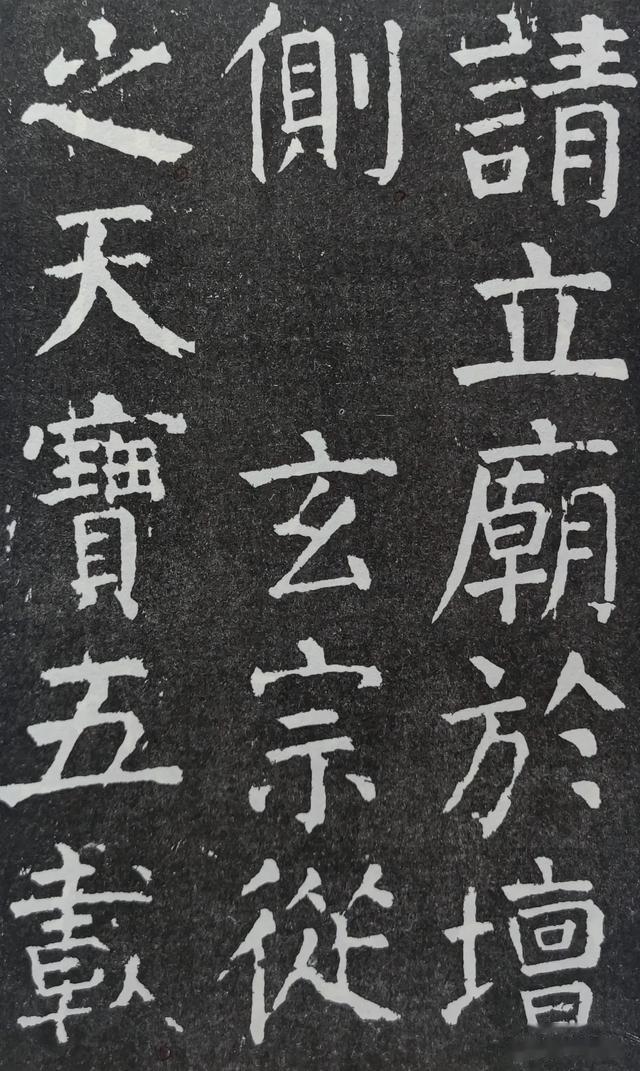 請立廟於壇
側玄宗從
之天寶五載